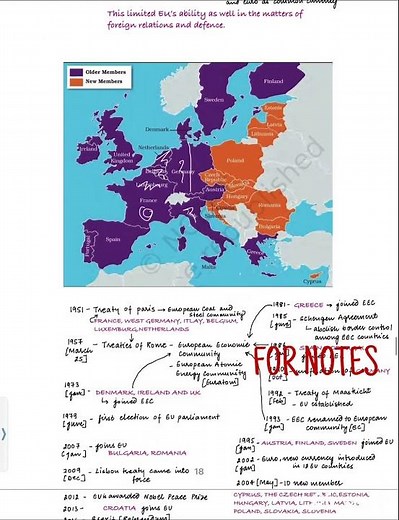 This limited EU's ability as well in the matters of
foreign relations and defence.
Older Members
New Members
Finland
Sweden
Estonia
Latvia
Lithuania
Denmark
Netherlands
Ireland
United
Kingdom
Germany
Poland
Belgium
Luxembourg
Czech
Republic
Slovakia
Austria
Hungary
France
Slovenia
Romania
Bulgaria
Portugal
Spain
Italy
Greece
Malta
Cyprus
1951 - Treaty of paris → European Coal and
Steel community
FRANCE, WEST GERMANY, ITLAY, BELGIUM,
LUXEMBURG, NETHERLANDS
1957 → Treaties of Rome - European Economic
[March
25]
community
- European Atomic
Energy community
[Euratom]
1973
[Jan] - DENMARK, IRELAND AND UK
↳ joined EEC
1979
[June] - first election of EU parliament
2007
[Jan] - joins EU
BULGARIA, ROMANIA
2009
[Dec] - Lisbon treaty came into
force
18
2012 - EU awarded Nobel Peace Prize
2013 - CROATIA joins EU
1981 - GREECE → joined EEC
1985
[June] - Schengen Agreement
↳ abolish border control
among EC countries
FOR NOTES
[Oct]
1992
[Feb] - Treaty of Maastricht
- EU established
1993 - EEC renamed to European
community [EC]
1995
[Jan] - AUSTRIA, FINLAND, SWEDEN joined EU
2002
[Jan] - Euro, new currency introduced
in 12 EU countries
2004 [May] - 10 new member
CYPRUS, THE CZECH ESTONIA,
HUNGARY, LATVIA,
POLAND, SLOVAKIA, SLOVENIA